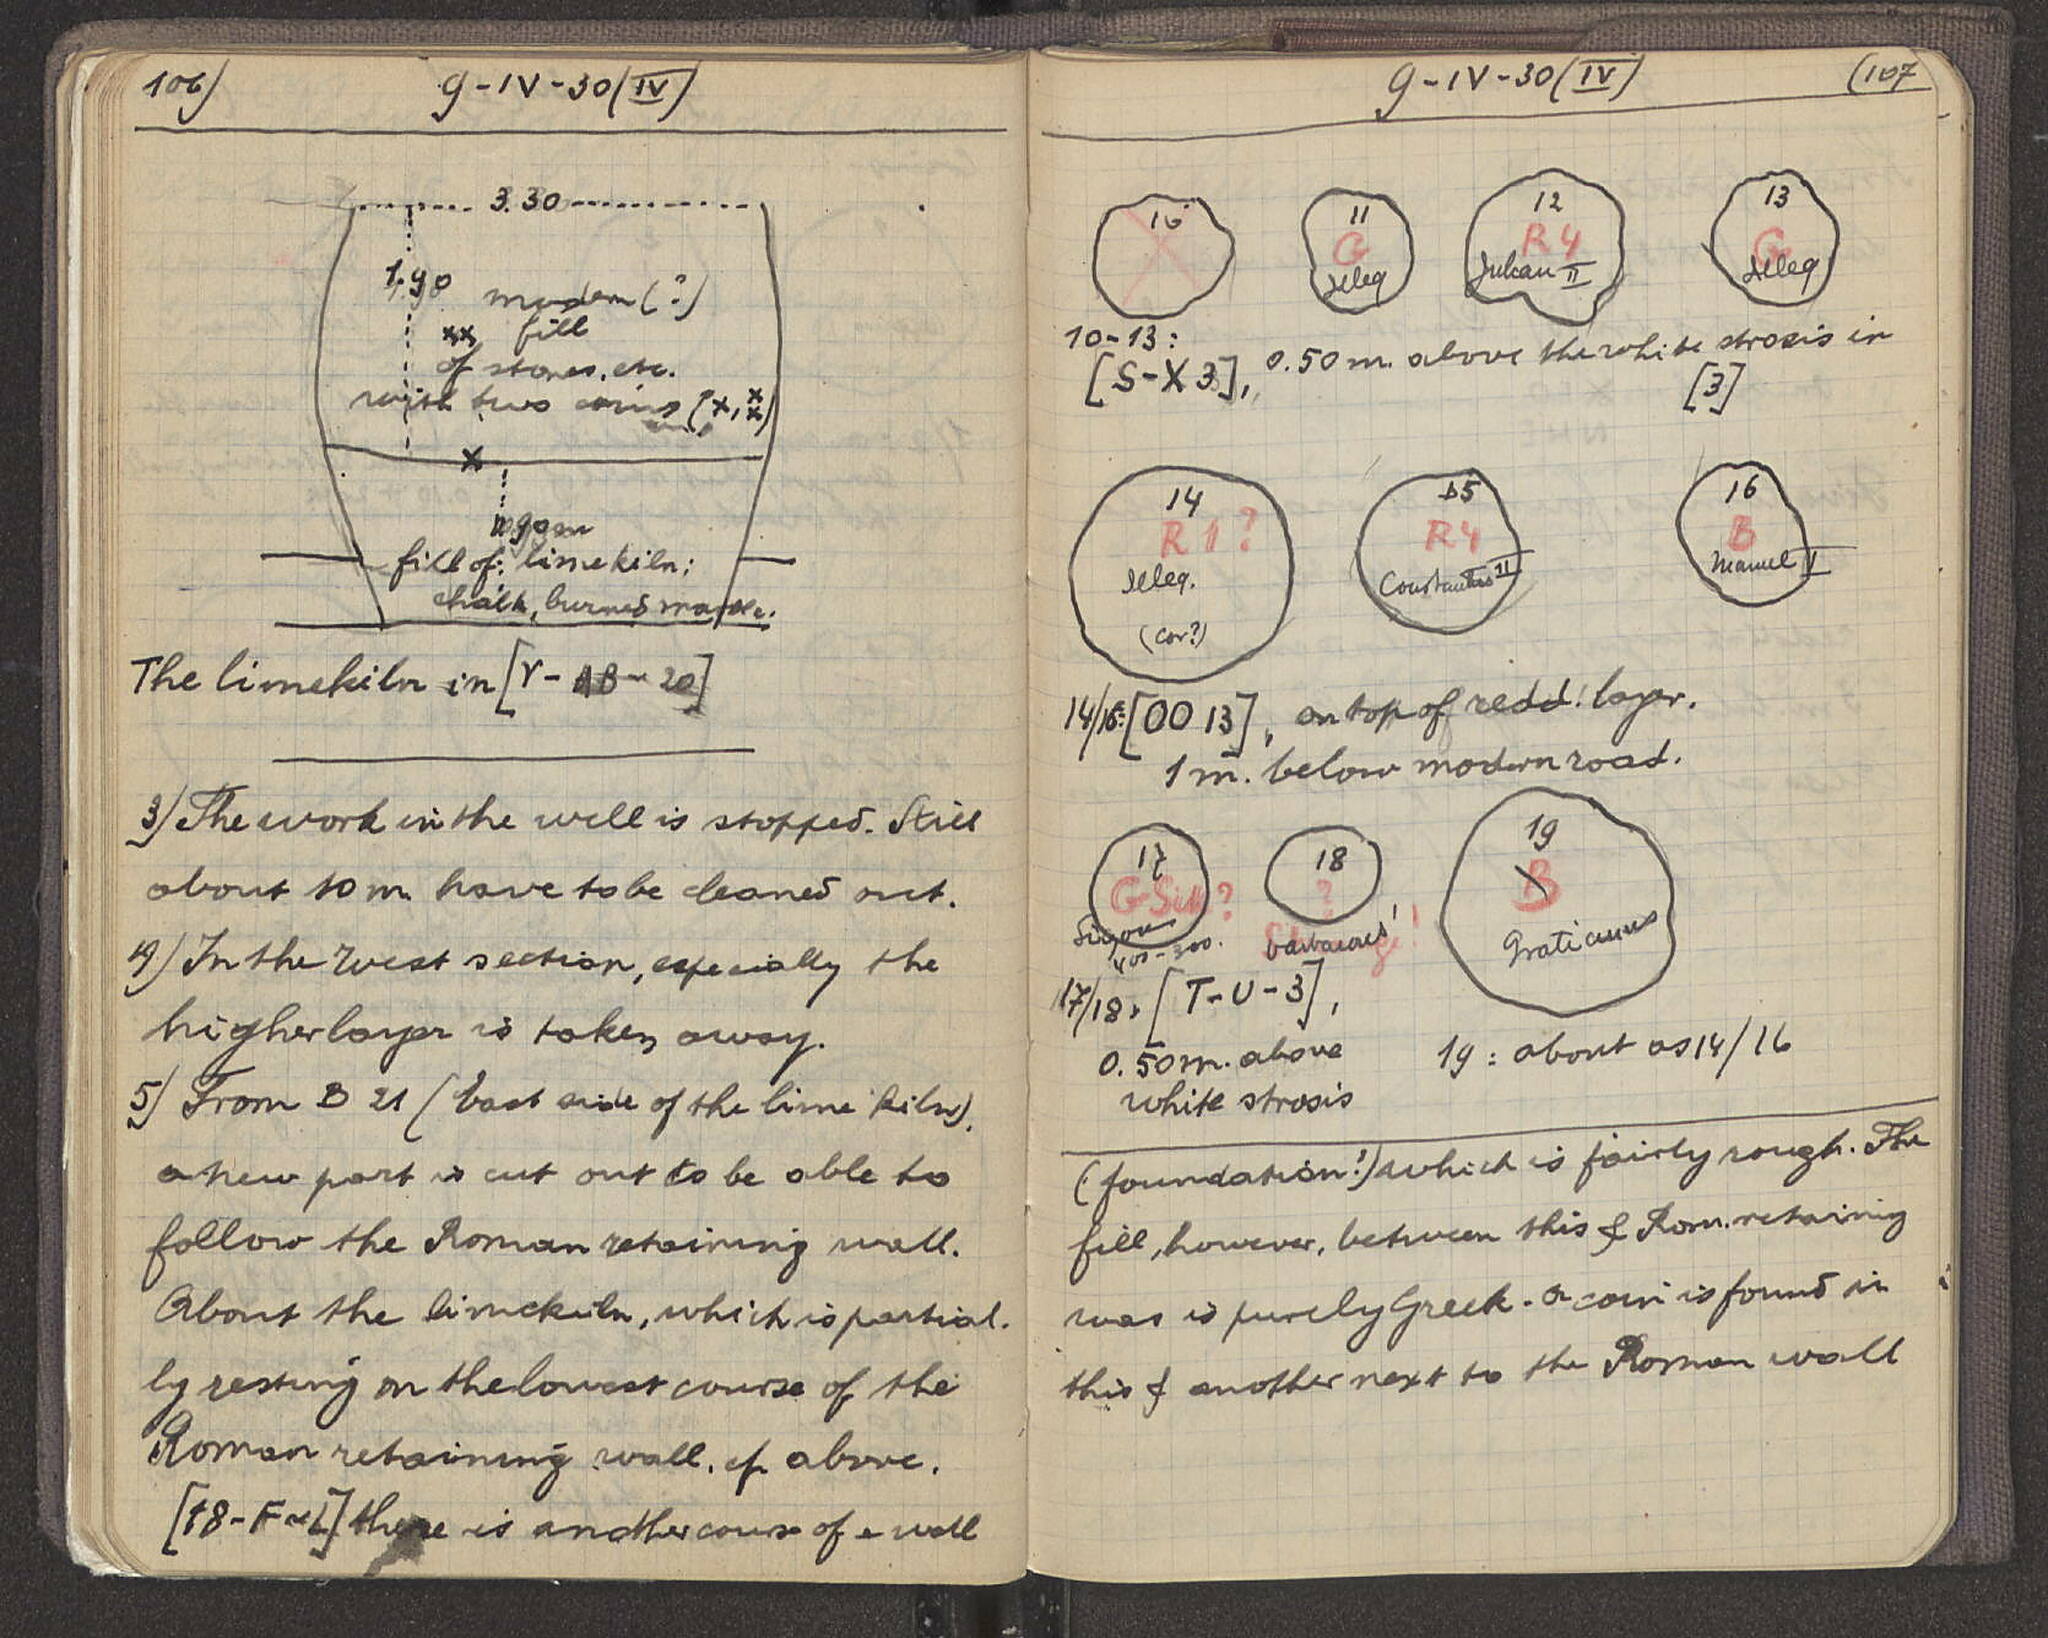 106)
9-IV-30(IV)
3.30
1,90
modern (?)
xx fill
of stones, etc.
with two coins (x, xx)
x
fill of: limekiln:
chalk, burned marble.
The limekiln in [Y-AB-20]
3) The work in the well is stopped. Still
about 10 m. have to be cleaned out.
4) In the West section, especially the
higher layer is taken away.
5) From B 21 (East side of the lime kiln),
a new part is cut out to be able to
follow the Roman retaining wall.
About the limekiln, which is partial-
ly resting on the lowest course of the
Roman retaining wall, cf. above.
[18-F-L] there is another course of a wall
9-IV-30(IV)
(107
10
11
G
illeg
12
R4
Julian II
13
G
illeg
10-13:
[S-X 3], 0.50 m. above the white strosis in
[3]
14
R1?
illeg.
(cor?)
15
R4
Constantius II
16
B
Manuel I
14/16: [OO 13], on top of redd. layer.
1 m. below modern road.
17
G-Sik?
Sicyon
400-300.
18
?
barbarous!
19
B
Gratianus
17/18: [T-U-3],
0.50 m. above
white strosis
19: about as 14/16
(foundation!) which is fairly rough. The
fill, however, between this & Rom. retaining
was is purely Greek. A coin is found in
this & another next to the Roman wall